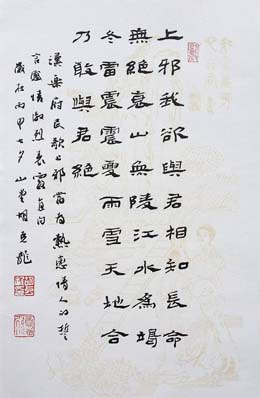 上邪我欲與君相知長命
無絕衰山無陵江水為竭
冬雷震震夏雨雪天地合
乃敢與君絕
漢樂府民歌上邪當為熱戀情人的誓
言感情激烈表露直
歲在丙申七夕山